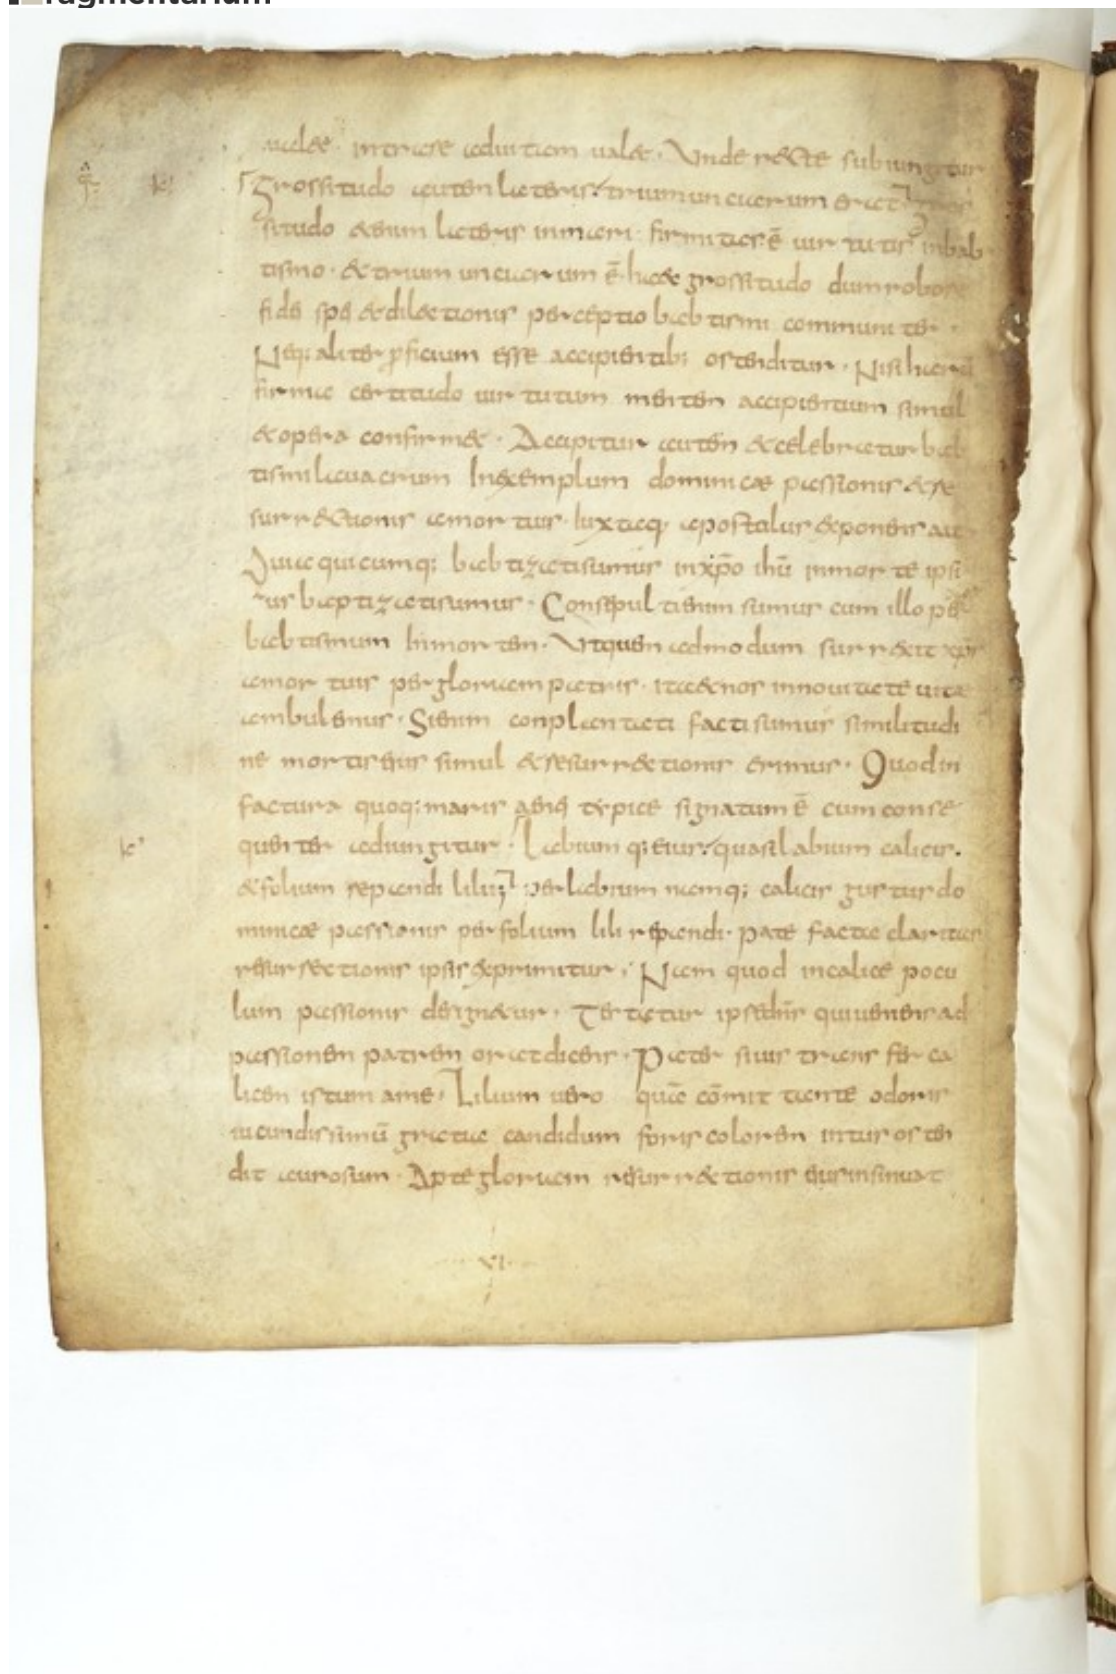 ragmentarium
intrare ad uitam ualet. Unde recte subiungitur
Grossitudo autem luteris. trium unciarum erat
situdo etenim luteris in mari. firmitas ē uirtutis in bab
tismo. et trium unciarum ē. haec grossitudo dum robore
fidei spei et dilectionis perceptio babtismi communiter.
Neq; aliter proficium esse accipientib; ostenditur. Nisi harū
firma certitudo uirtutum mentem accipientium simul
et opera confirmet. Accipitur autem et celebratur bab
tismi lauacrum In exemplum dominicae passionis et re
surrectionis a mortuis. Iuxta q; apostolus exponens ait
quicumq; babtizati sumus in xpō ihū in morte ipsi
us baptizati sumus. Consepulti enim sumus cum illo per
babtismum In mortem. Ut quem admodum surrexit xp̄s
a mortuis per gloriam patris. ita et nos in nouitate uitae
ambulemus. Si enim conplantati facti sumus similitudi
ne mortis eius simul et resurrectionis erimus. Quod in
factura quoq; maris typice signatum ē cum conse
quenter adiungitur. Labium q; eius. quasi labium calicis.
et folium repandi lilii per labium namq; calicis gustus do
minicae passionis per folium lilii repandi. patefacta claritas
resurrectionis ipsis exprimitur. Nam quod in calice pocu
lum passionis designetur. Testatur ipse dn̄s qui ueniens ad
passionem patrem orat dicens. Pater si uis transfer ca
licem istum a me. Lilium uero quā cōmittante odoris
iucundissimū gratia candidum foris colorem intus osten
dit aurosum. Apte gloriam resurrectionis eius insinuat
XI